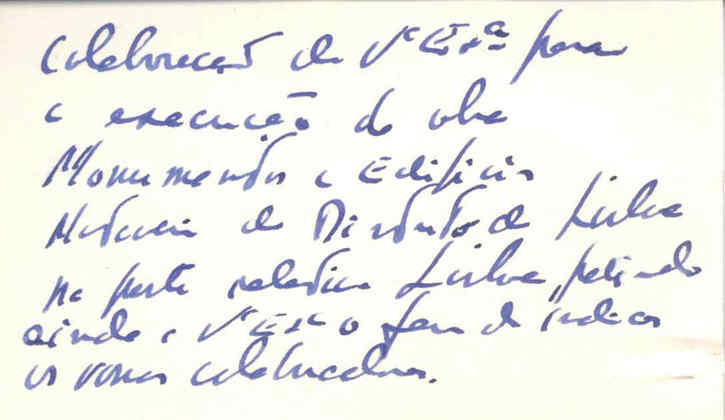 Colaboração de Vª Exª para
a execução da obra
Monumentos e Edifícios
Notáveis do Distrito de Lisboa
na parte relativa Lisboa, pedindo
ainda a Vª Exª o favor de indicar
os vossos colaboradores.